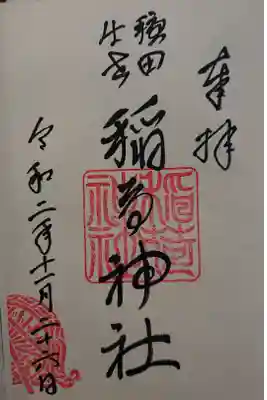 奉拝
稲荷神社
令和二年十一月二十六日